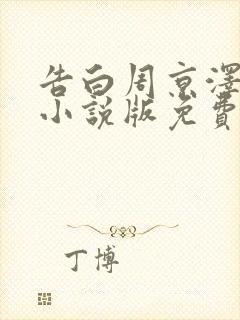 告白周京澤
小説版免費
丁博